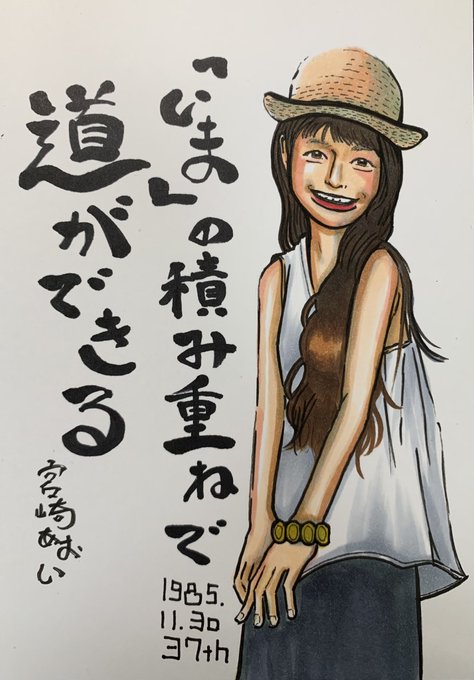 「いま」の積み重ねで
道ができる
宮崎あおい
1985.
11.30
37th